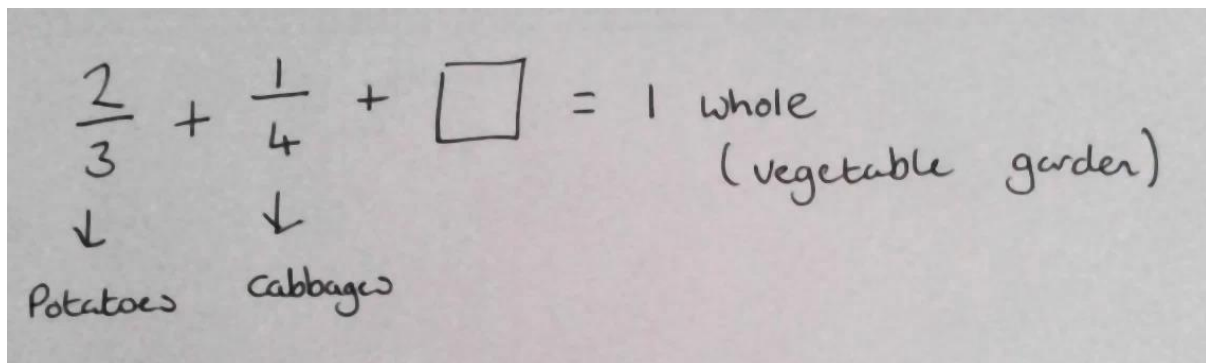 2/3 + 1/4 + □ = 1 whole
(vegetable garden)
↓ ↓
Potatoes cabbages